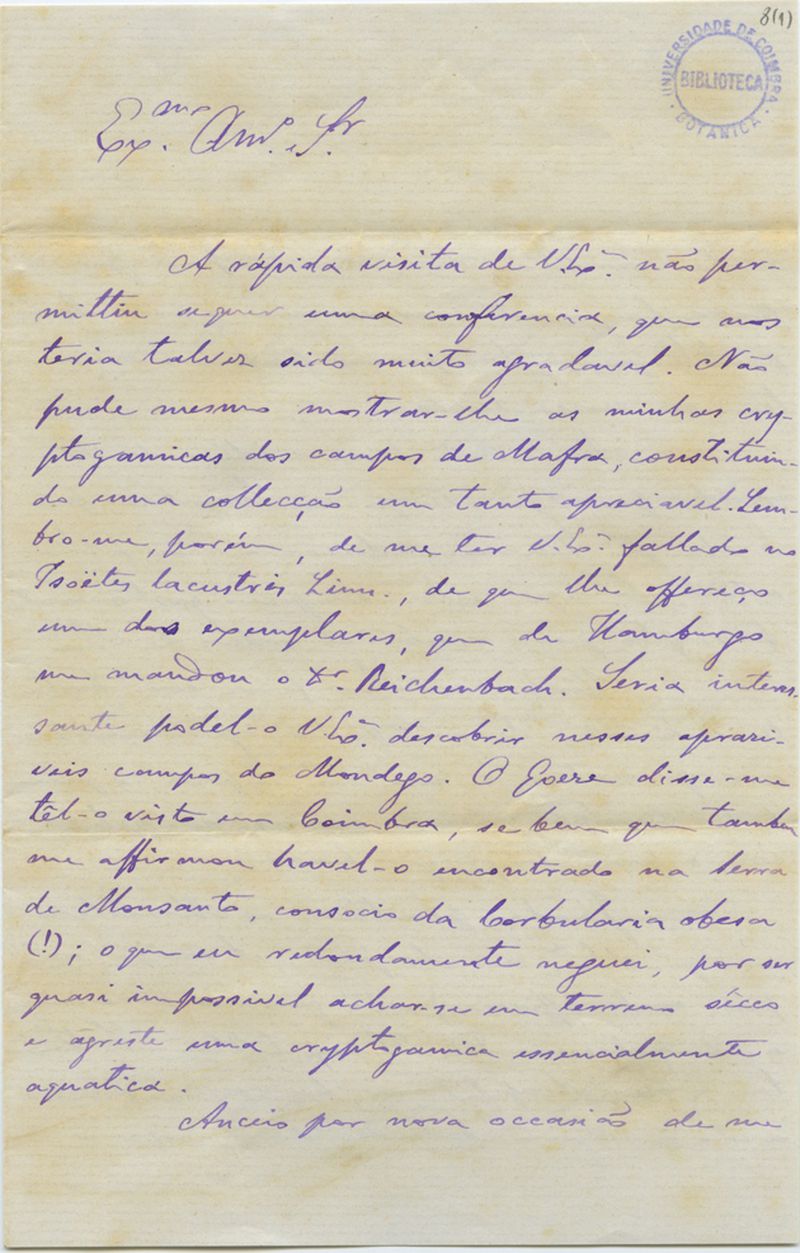 8(1)
UNIVERSIDADE DE COIMBRA
BIBLIOTECA
BOTANICA
Ex.mo Am.o e Sr.
A rápida visita de V. Ex.ª não per-
mittiu sequer uma conferencia, que nos
teria talvez sido muito agradavel. Não
pude mesmo mostrar-lhe as minhas cry-
ptogamicas dos campos de Mafra, constituin-
do uma collecção um tanto apreciavel. Lem-
bro-me, porém, de me ter V. Ex.ª fallado no
Isoëtes lacustris Linn., de que lhe offereço
um dos exemplares, que de Hamburgo
me mandou o Dr. Reichenbach. Seria interes-
sante podel-o V. Ex.ª descobrir nesses aprazi-
veis campos do Mondego. O Goeze disse-me
têl-o visto em Coimbra, se bem que tambem
me affirmou havel-o encontrado na Serra
de Monsanto, consocio da Corbularia obesa
(!); o que eu redondamente neguei, por ser
quasi impossivel achar-se em terreno sêcco
e agreste uma cryptogamica essencialmente
aquatica.
Anceio por nova occasião de me